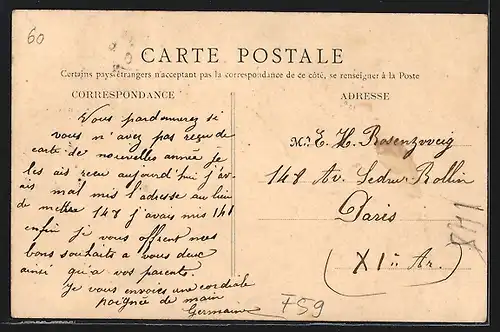 60
CARTE POSTALE
Certains pays étrangers n'acceptant pas la correspondance de ce côté, se renseigner à la Poste
CORRESPONDANCE
Vous pardonnerez si
vous n'avez pas reçu de
carte de nouvelles année je
les ais reçu aujourd'hui j'av-
ais mal mis l'adresse au lieu
de mettre 148 j'avais mis 141
enfin je vous offrent mes
bons souhaits a vous deux
ainsi qu'a vos parents.
Je vous envoies une cordiale
poignée de main
Germaine
ADRESSE
M. E. H. Rosenzweig
148 Av. Ledru Rollin
Paris
(XIe Ar.)
F59